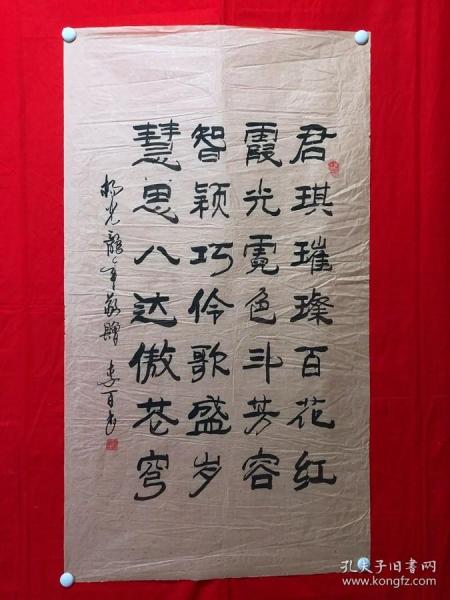 君琪璀璨百花红
霞光霓色斗芳容
智颖巧伶歌盛岁
慧思八达傲苍穹
杨光龙年敬赠 李百
孔夫子旧书网
www.kongfz.com